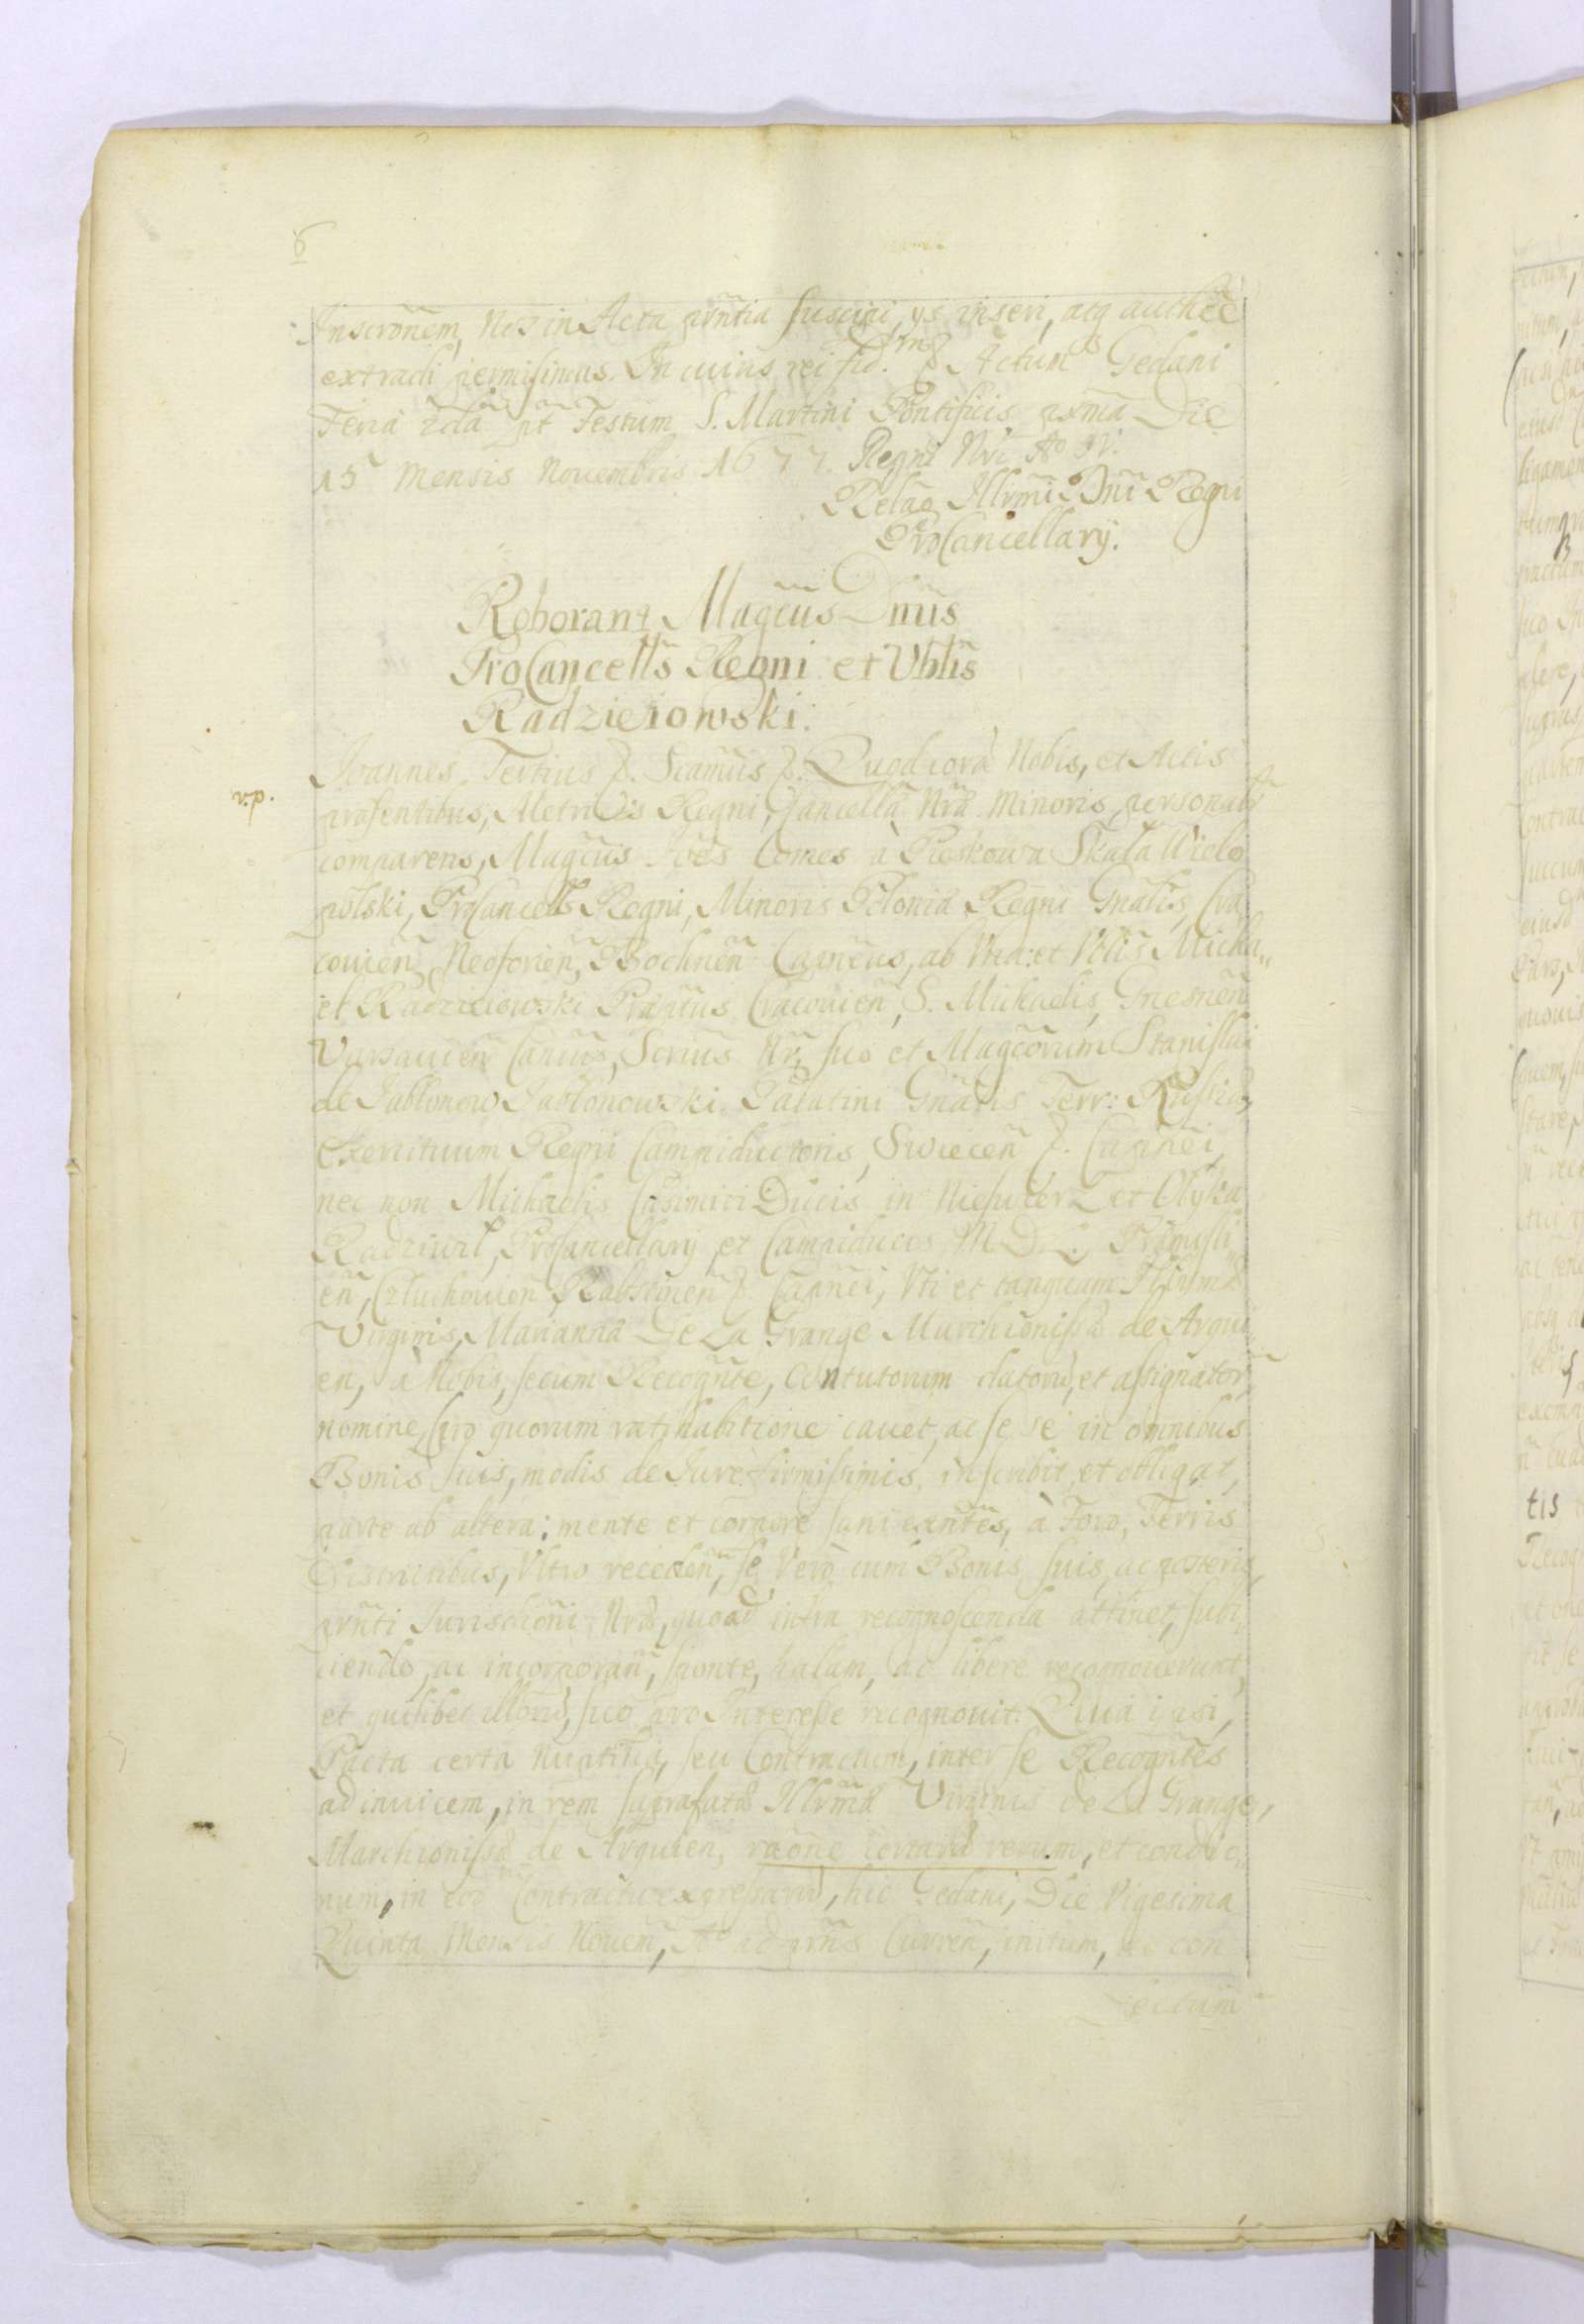 6
Inscrõnem, Nos in Acta prñtia suscipi, ys inseri, atq authẽe
extradi permisimus. In cuius rei fid. Actum Gedani
Feria 2da pt Festum S. Martini Pontificis pxma Die
15 Mensis Nouembris 1677. Regni Nri Ao IV.
Relaõ Illrmi Dni Regni
ProCancellarÿ.
Roborant Magcus Dnus
ProCancells Regni et Vblis
Radzieiowski.
Joannes Tertius &. Scamus &. Quod corã Nobis, et Actis
præsentibus, Metrices Regni, Cancellæ Nræ Minoris, personalr
comparens, Magcus Joes Comes à Pieskowa Skała Wielo
polski, ProCancells Regni, Minoris Poloniæ Regni Gnalis, Cra
couien, Neoforien, Bochnen Capneus, ab Vna: et Vblis Micha„
el Radzieiowski Præptus Cracouien, S. Michaelis, Gnesnen
Varsauien Canus, Scrius Nr, suo et Magcorum Stanislai
de Jabłonow Jabłonowski Palatini Gnalis Terr: Russiæ,
Exercituum Regni Campiductoris, Swiecen &. Capnei,
nec non Michaelis Casimiri Ducis in Nieswierz et Ołyka
Radziwił, ProCancellarÿ et Campiducis M. D. L. Præmisli
en, Człuchouien Rabsztinen &. Capnei, Vti et tanquam Illrmæ
Virginis, Mariannæ De La Grange Marchionissæ de Arqui
en, à Nobis, secum Recognte, Contutorum datorũ, et assignator,
nomine, pro quorum ratihabitione cauet, ac se se in omnibus
Bonis suis, modis de Jure firmissimis, inscribit, et obligat,
parte ab altera; mente et corpore sani exntes, à Foro, Terris
Districtibus, Vltro receden, se Vero cum Bonis suis, ac posteris,
prñti Jurisdioni Nræ, quoad infra recognoscenda attinet, subi
ciendo, ac incorporan, sponte, palam, ac libere recognouerunt,
et quilibet illorũ, suo pro Interesse recognouit. Quia ipsi,
Pacta certa Nuptialia, seu Contractum, inter se Recogntes
ad inuicem, in rem suprafatæ Illrmæ Virginis de La Grange,
Marchionissæ de Arquien, raone certarũ rerum, et condio„
num, in eod Contractu expressarũ, hic Gedani, Die Vigesima
Quinta Mensis Nouem, Ao ad prñs Curren, initum, ac con
fectum